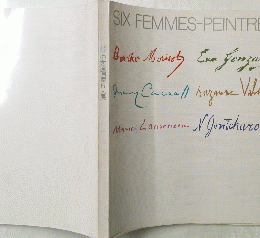 SIX FEMMES-PEINTRE
Berthe Morisot Eva Gonza
Mary Cassatt Suzanne Vala
Marie Laurencin N Gontcharo